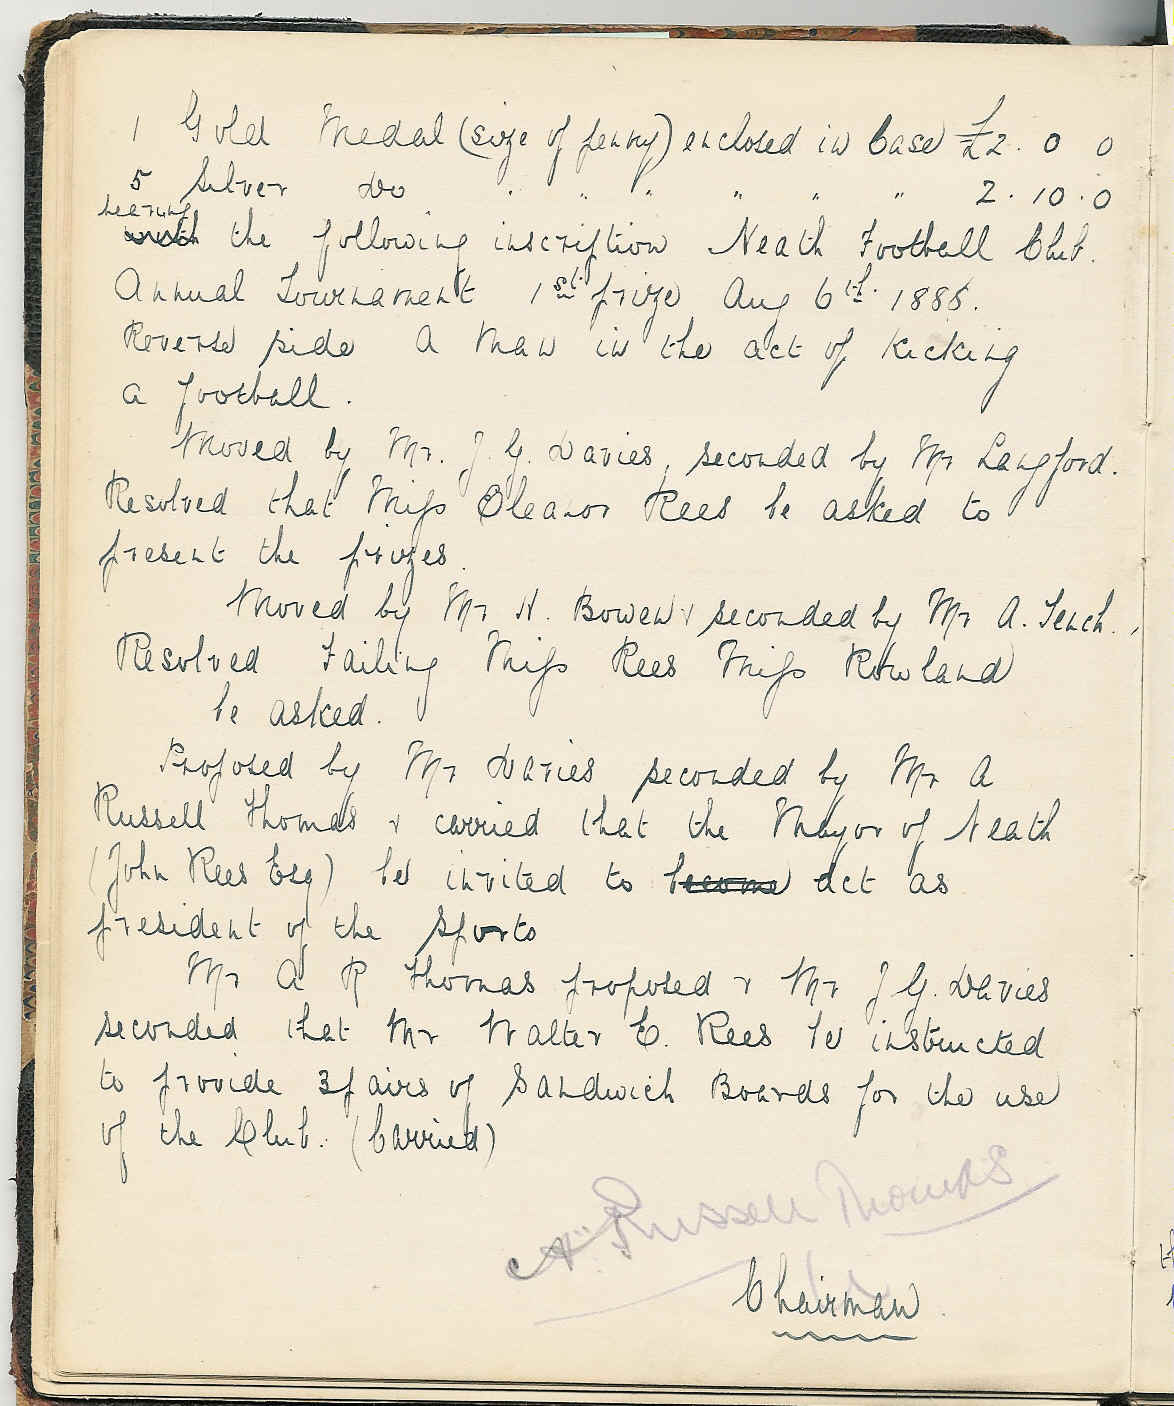 1 Gold Medal (size of penny) enclosed in Case £2. 0 0
5 Silver Do " " " " " " 2. 10. 0
bearing
with the following inscription Neath Football Club.
Annual Tournament 1st prize Aug 6th. 1885.
Reverse side A Man in the act of kicking
a football.
Moved by Mr. J. G. Davies, seconded by Mr Langford.
Resolved that Miss Eleanor Rees be asked to
present the prizes.
Moved by Mr H. Bowen & seconded by Mr A. Tench.,
Resolved Failing Miss Rees Miss Rowland
be asked.
Proposed by Mr Davies seconded by Mr A
Russell Thomas & carried that the Mayor of Neath
(John Rees Esq) be invited to become act as
president of the Sports
Mr A R Thomas proposed & Mr J G. Davies
seconded that Mr Walter E. Rees be instructed
to provide 3 pairs of Sandwich Boards for the use
of the Club. (Carried)
A. Russell Thomas
Chairman